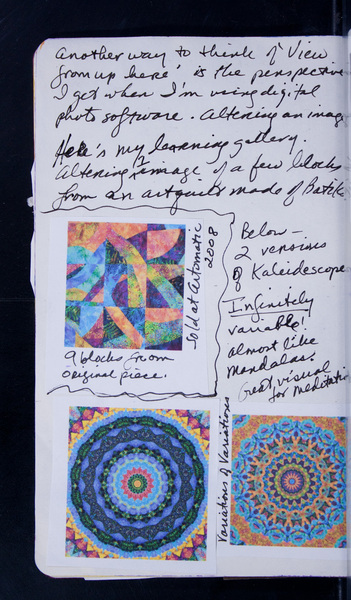 another way to think of 'View
from up here' is the perspective
I get when I'm using digital
photo software. Altening an imag
Here's my learning gallery.
Altening 1 image of a few blocks
from an artquilt made of Batik.
Sold at Automatic
2008
9 blocks from
original piece.
Below –
2 versions
of Kaleidescope
Infinitely
variable!
almost like
mandalas.
Great visual
for meditation
Variations of Variations